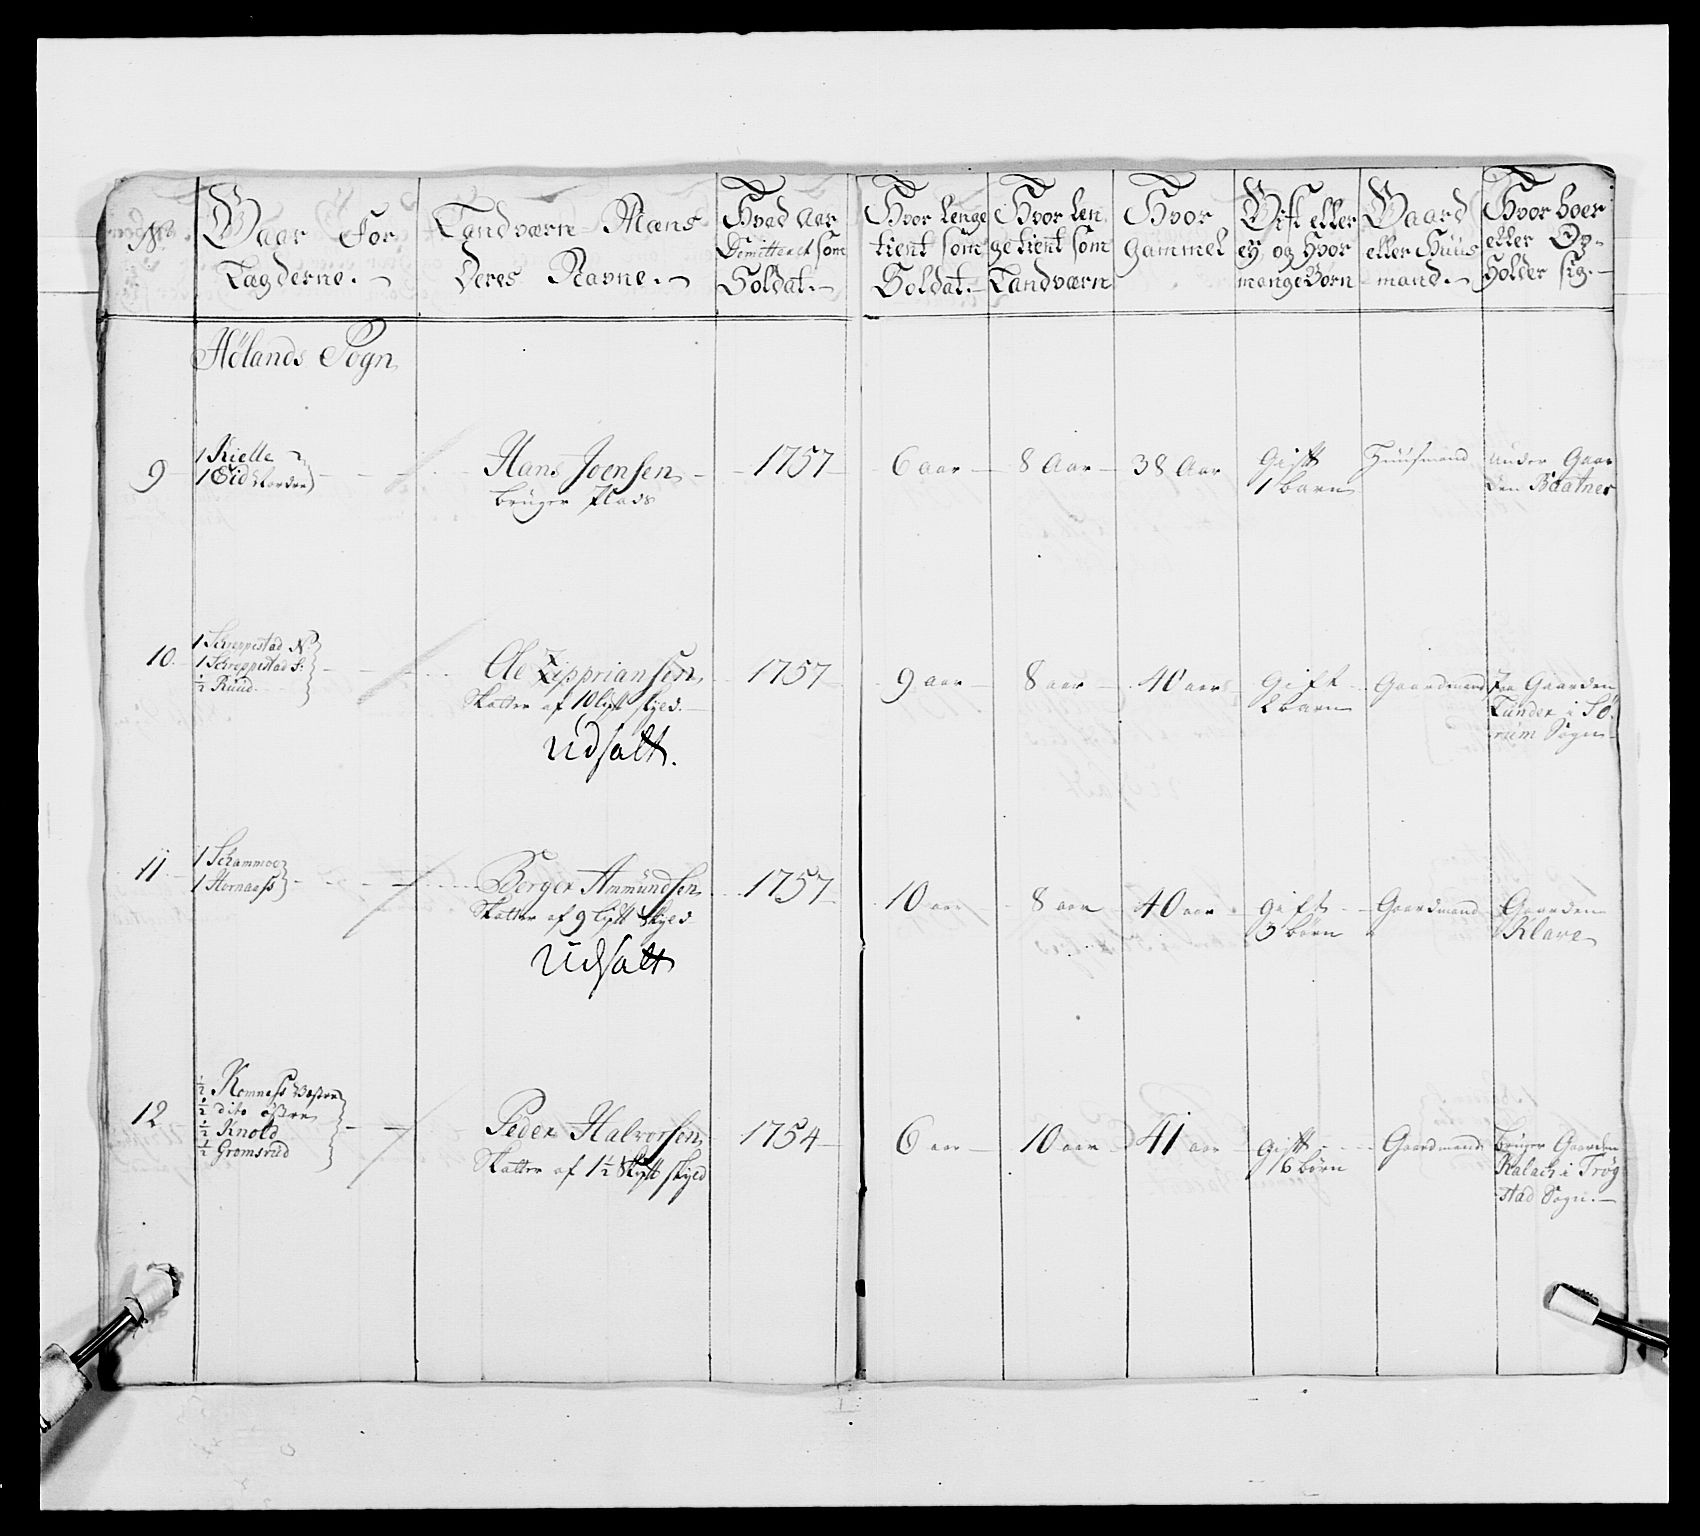 No.
Gaar For
Lægderne.
Landværn Mæns
Deres Navne.
Hvad Aar
Dimitteret som
Soldat.
Hvor lenge
tient som
Soldat.
Hvor len
ge tient som
Landværn
Hvor
Gammel
Gift eller
ey, og Hvor
mange Børn
Gaard
eller Huus
mand.
Hvor boer
eller Op-
Holder sig.
Hølands Sogn
9
1 Kielle
1 Eid Nordre
Hans Joensen
bruger Plads
1757
6 aar
8 Aar
38 Aar
Gift
1 barn
Huusmand
under Gaar
den Baatnes
10
1 Schreppestad N:
1 Schreppestad S:
1/2 Ruud
Ole Zipriansen
Skatter af 10 skyld
Udsatt.
1757
9 aar
8 aar
40 aar
Gift
2 barn
Gaardmand
Paa Gaarden
Lunder i Sø
rum Sogn
11
1 Schammoe
1 Hornaass
Berger Ammundsen
Skatter af 9 skyld
Udsatt
1757
10 aar
8 aar
40 aar
gift
3 børn
Gaardmand
Gaarden
Klare
12
1/2 Komness Vestre
1/2 dito østre
1/2 Knold
1/2 Gromsrud
Peder Halvorsen
Skatter af 1 1/2 skyld
1754
6 aar
10 aar
41 aar
gift
6 børn
Gaardmand
bruger Gaarden
Kalach i Trøg
stad Sogn.